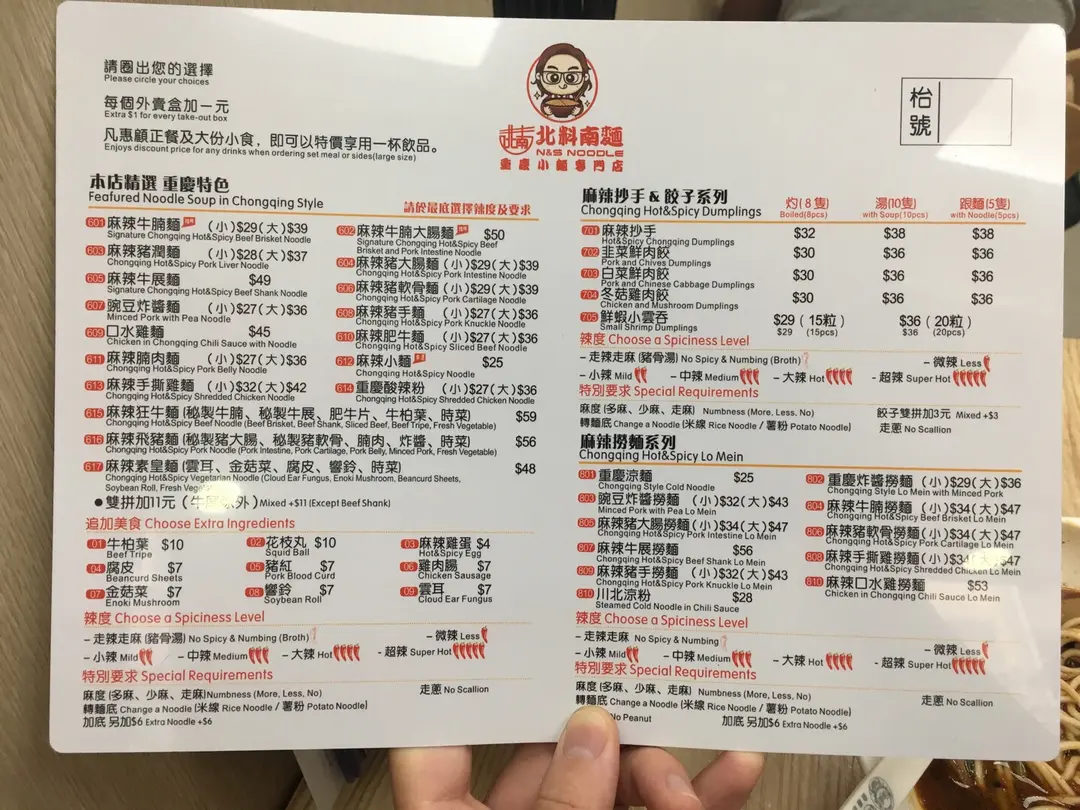 請圈出您的選擇
Please circle your choices
每個外賣盒加一元
Extra $1 for every take-out box
凡惠顧正餐及大份小食，即可以特價享用一杯飲品。
Enjoys discount price for any drinks when ordering set meal or sides(large size)
北料南麵
N&S NOODLE
重慶小麵專門店
枱號
本店精選 重慶特色
Feafured Noodle Soup in Chongqing Style
請於最底選擇辣度及要求
601 麻辣牛腩麵 (小)$29(大)$39
Signature Chongqing Hot&Spicy Beef Brisket Noodle
602 麻辣牛腩大腸麵 $50
Signature Chongqing Hot&Spicy Beef
Brisket and Pork Intestine Noodle
603 麻辣豬潤麵 (小)$28(大)$37
Chongqing Hot&Spicy Pork Liver Noodle
604 麻辣豬大腸麵 (小)$29(大)$39
Chongqing Hot&Spicy Pork Intestine Noodle
605 麻辣牛展麵 $49
Signature Chongqing Hot&Spicy Beef Shank Noodle
606 麻辣豬軟骨麵 (小)$29(大)$39
Chongqing Hot&Spicy Pork Cartilage Noodle
607 豌豆炸醬麵 (小)$27(大)$36
Minced Pork with Pea Noodle
608 麻辣豬手麵 (小)$27(大)$36
Chongqing Hot&Spicy Pork Knuckle Noodle
609 口水雞麵 $45
Chicken in Chongqing Chili Sauce with Noodle
610 麻辣肥牛麵 (小)$27(大)$36
Chongqing Hot&Spicy Sliced Beef Noodle
611 麻辣腩肉麵 (小)$27(大)$36
Chongqing Hot&Spicy Pork Belly Noodle
612 麻辣小麵 $25
Chongqing Hot&Spicy Noodle
613 麻辣手撕雞麵 (小)$32(大)$42
Chongqing Hot&Spicy Shredded Chicken Noodle
614 重慶酸辣粉 (小)$27(大)$36
Chongqing Hot&Spicy Shredded Chicken Noodle
615 麻辣狂牛麵 (秘製牛腩、秘製牛展、肥牛片、牛柏葉、時菜) $59
Chongqing Hot&Spicy Beef Noodle (Beef Brisket, Beef Shank, Sliced Beef, Beef Tripe, Fresh Vegetable)
616 麻辣飛豬麵 (秘製豬大腸、秘製豬軟骨、腩肉、炸醬、時菜) $56
Chongqing Hot&Spicy Pork Noodle (Pork Intestine, Pork Cartilage, Pork Belly, Minced Pork, Fresh Vegetable)
617 麻辣素皇麵 (雲耳、金菇菜、腐皮、響鈴、時菜) $48
Chongqing Hot&Spicy Vegetarian Noodle (Cloud Ear Fungus, Enoki Mushroom, Beancurd Sheets,
Soybean Roll, Fresh Vegetable)
●雙拼加11元 (牛展除外) Mixed +$11 (Except Beef Shank)
追加美食 Choose Extra Ingredients
01 牛柏葉 $10
Beef Tripe
02 花枝丸 $10
Squid Ball
03 麻辣雞蛋 $4
Hot&Spicy Egg
04 腐皮 $7
Beancurd Sheets
05 豬紅 $7
Pork Blood Curd
06 雞肉腸 $7
Chicken Sausage
07 金菇菜 $7
Enoki Mushroom
08 響鈴 $7
Soybean Roll
09 雲耳 $7
Cloud Ear Fungus
辣度 Choose a Spiciness Level
- 走辣走麻 (豬骨湯) No Spicy & Numbing (Broth)
- 微辣 Less
- 小辣 Mild
- 中辣 Medium
- 大辣 Hot
- 超辣 Super Hot
特別要求 Special Requirements
麻度 (多麻、少麻、走麻) Numbness (More, Less, No)
走蔥 No Scallion
轉麵底 Change a Noodle (米線 Rice Noodle / 薯粉 Potato Noodle)
加底 另加$6 Extra Noodle +$6
麻辣抄手 & 餃子系列
Chongqing Hot&Spicy Dumplings
灼(8隻)
Boiled(8pcs)
湯(10隻)
with Soup(10pcs)
跟麵(5隻)
with Noodle(5pcs)
701 麻辣抄手 $32 $38 $38
Hot&Spicy Chongqing Dumplings
702 韭菜鮮肉餃 $30 $36 $36
Pork and Chives Dumplings
703 白菜鮮肉餃 $30 $36 $36
Pork and Chinese Cabbage Dumplings
704 冬菇雞肉餃 $30 $36 $36
Chicken and Mushroom Dumplings
705 鮮蝦小雲吞 $29 (15粒) $36 (20粒)
Small Shrimp Dumplings $29 (15pcs) $36 (20pcs)
辣度 Choose a Spiciness Level
- 走辣走麻 (豬骨湯) No Spicy & Numbing (Broth)
- 微辣 Less
- 小辣 Mild
- 中辣 Medium
- 大辣 Hot
- 超辣 Super Hot
特別要求 Special Requirements
麻度 (多麻、少麻、走麻) Numbness (More, Less, No)
餃子雙拼加3元 Mixed +$3
轉麵底 Change a Noodle (米線 Rice Noodle / 薯粉 Potato Noodle)
走蔥 No Scallion
麻辣撈麵系列
Chongqing Hot&Spicy Lo Mein
801 重慶涼麵 $25
Chongqing Style Cold Noodle
802 重慶炸醬撈麵 (小)$29(大)$36
Chongqing Style Lo Mein with Minced Pork
803 豌豆炸醬撈麵 (小)$32(大)$43
Minced Pork with Pea Lo Mein
804 麻辣牛腩撈麵 (小)$34(大)$47
Chongqing Hot&Spicy Beef Brisket Lo Mein
805 麻辣豬大腸撈麵 (小)$34(大)$47
Chongqing Hot&Spicy Pork Intestine Lo Mein
806 麻辣豬軟骨撈麵 (小)$34(大)$47
Chongqing Hot&Spicy Pork Cartilage Lo Mein
807 麻辣牛展撈麵 $56
Chongqing Hot&Spicy Beef Shank Lo Mein
808 麻辣手撕雞撈麵 (小)$34(大)$47
Chongqing Hot&Spicy Shredded Chicken Lo Mein
809 麻辣豬手撈麵 (小)$32(大)$43
Chongqing Hot&Spicy Pork Knuckle Lo Mein
810 麻辣口水雞撈麵 $53
Chicken in Chongqing Chili Sauce Lo Mein
810 川北涼粉 $28
Steamed Cold Noodle in Chili Sauce
辣度 Choose a Spiciness Level
- 走辣走麻 No Spicy & Numbing
- 微辣 Less
- 小辣 Mild
- 中辣 Medium
- 大辣 Hot
- 超辣 Super Hot
特別要求 Special Requirements
麻度 (多麻、少麻、走麻) Numbness (More, Less, No)
走蔥 No Scallion
轉麵底 Change a Noodle (米線 Rice Noodle / 薯粉 Potato Noodle)
No Peanut
加底 另加$6 Extra Noodle +$6